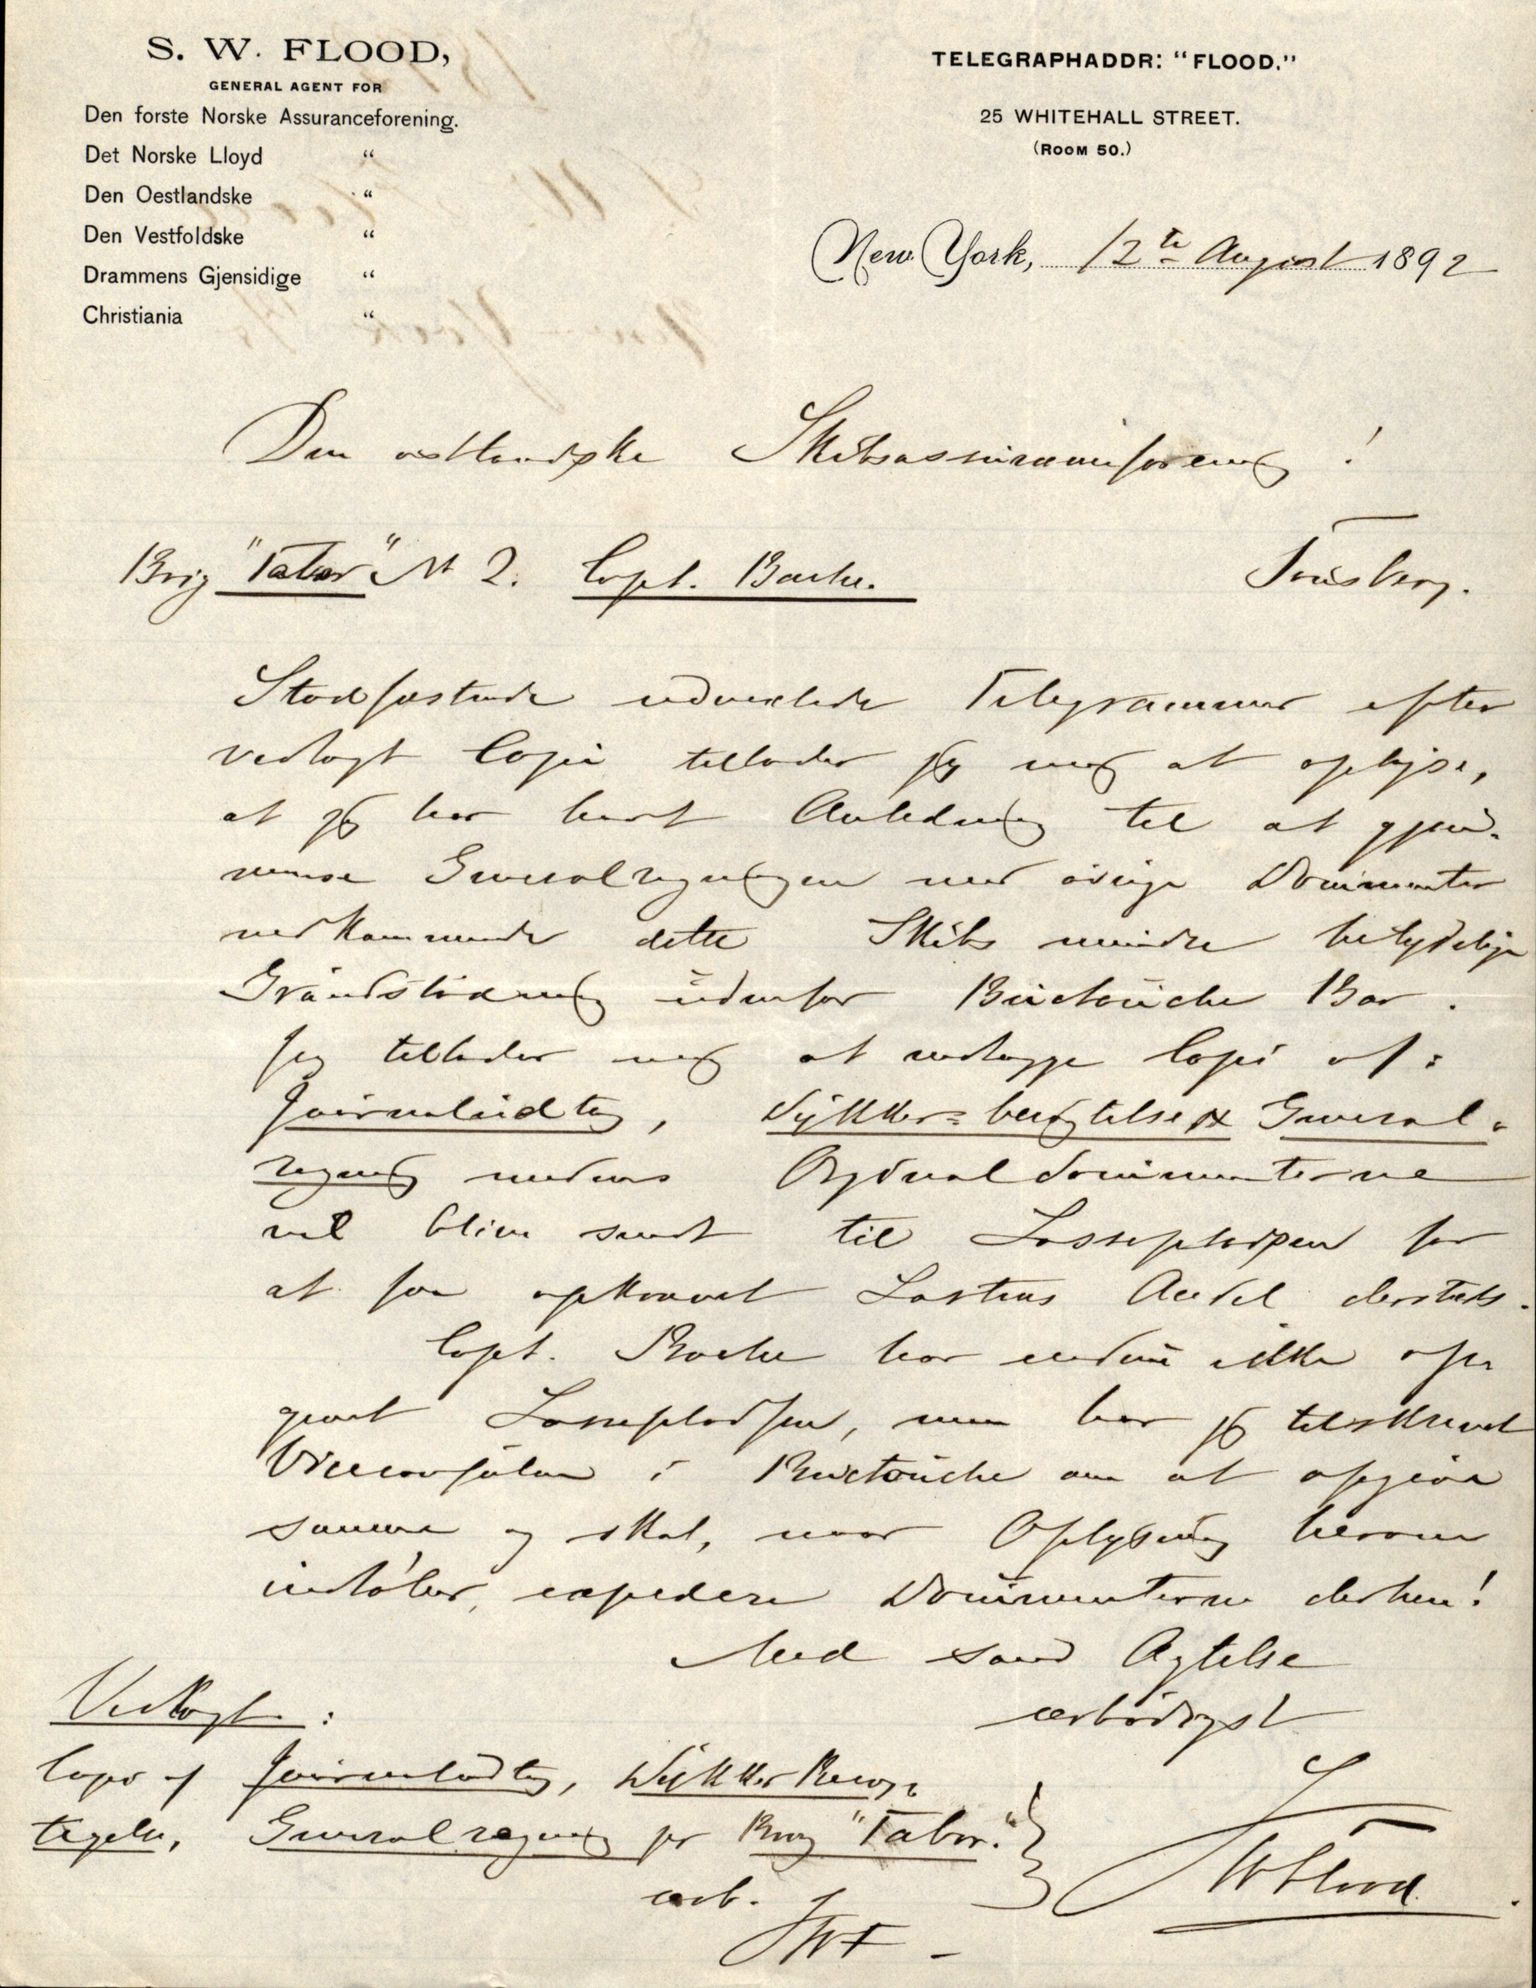 S. W. FLOOD,
GENERAL AGENT FOR
Den forste Norske Assuranceforening.
Det Norske Lloyd "
Den Oestlandske "
Den Vestfoldske "
Drammens Gjensidige "
Christiania "
TELEGRAPHADDR: "FLOOD."
25 WHITEHALL STREET.
(ROOM 50.)
New York, 12te August 1892
Den østlandske Skibsassuranceforening!
Brig "Tabor" No 2. Capt. Bache.
Tönsberg.
Stadfæstende udvexlede Telegrammer efter
vedlagt Copi tillader jeg mig at oplyse,
at jeg har havt Anledning til at gjen-
nemse Generalregningen med øvrige Documenter
vedkommende dette Skibs mindre betydelige
Grundstødning udenfor Buctouche Bar.
Jeg tillader mig at vedlægge Copi af:
Journaludtog, Dykker-besigtelse & General-
regning medens Orginaldocumenterne
vil blive sendt til Lossepladsen for
at faa opkrævet Lastens Andel dersteds.
Capt. Bache har endnu ikke op-
givet Lossepladsen, men har jeg tilskrevet
Viceconsulen i Buctouche om at opgive
samme og skal, naar Oplysning herom
indløber, expedere Documenterne derhen!
Med sand Agtelse
ærbødigst
SWFlood.
Vedlagt:
Copi af Journaludtog, Dykker Besig-
tigelse, Generalregning pr Brig "Tabor."
ærb. SWF -